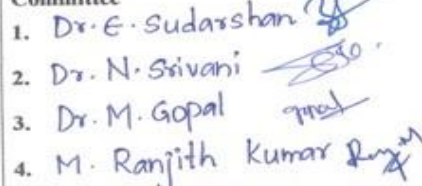 Committee
1. Dr. E. Sudarshan
2. Dr. N. Srivani
3. Dr. M. Gopal gopal
4. M. Ranjith Kumar